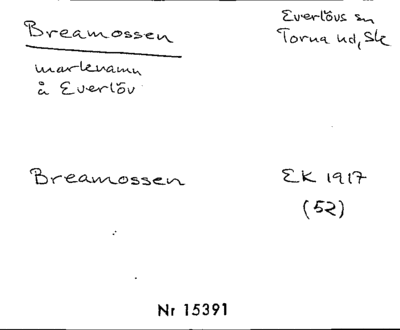 Breamossen
Everlövs sn
Torna hd, Sk
marknamn
å Everlöv
Breamossen
EK 1917
(52)
Nr 15391